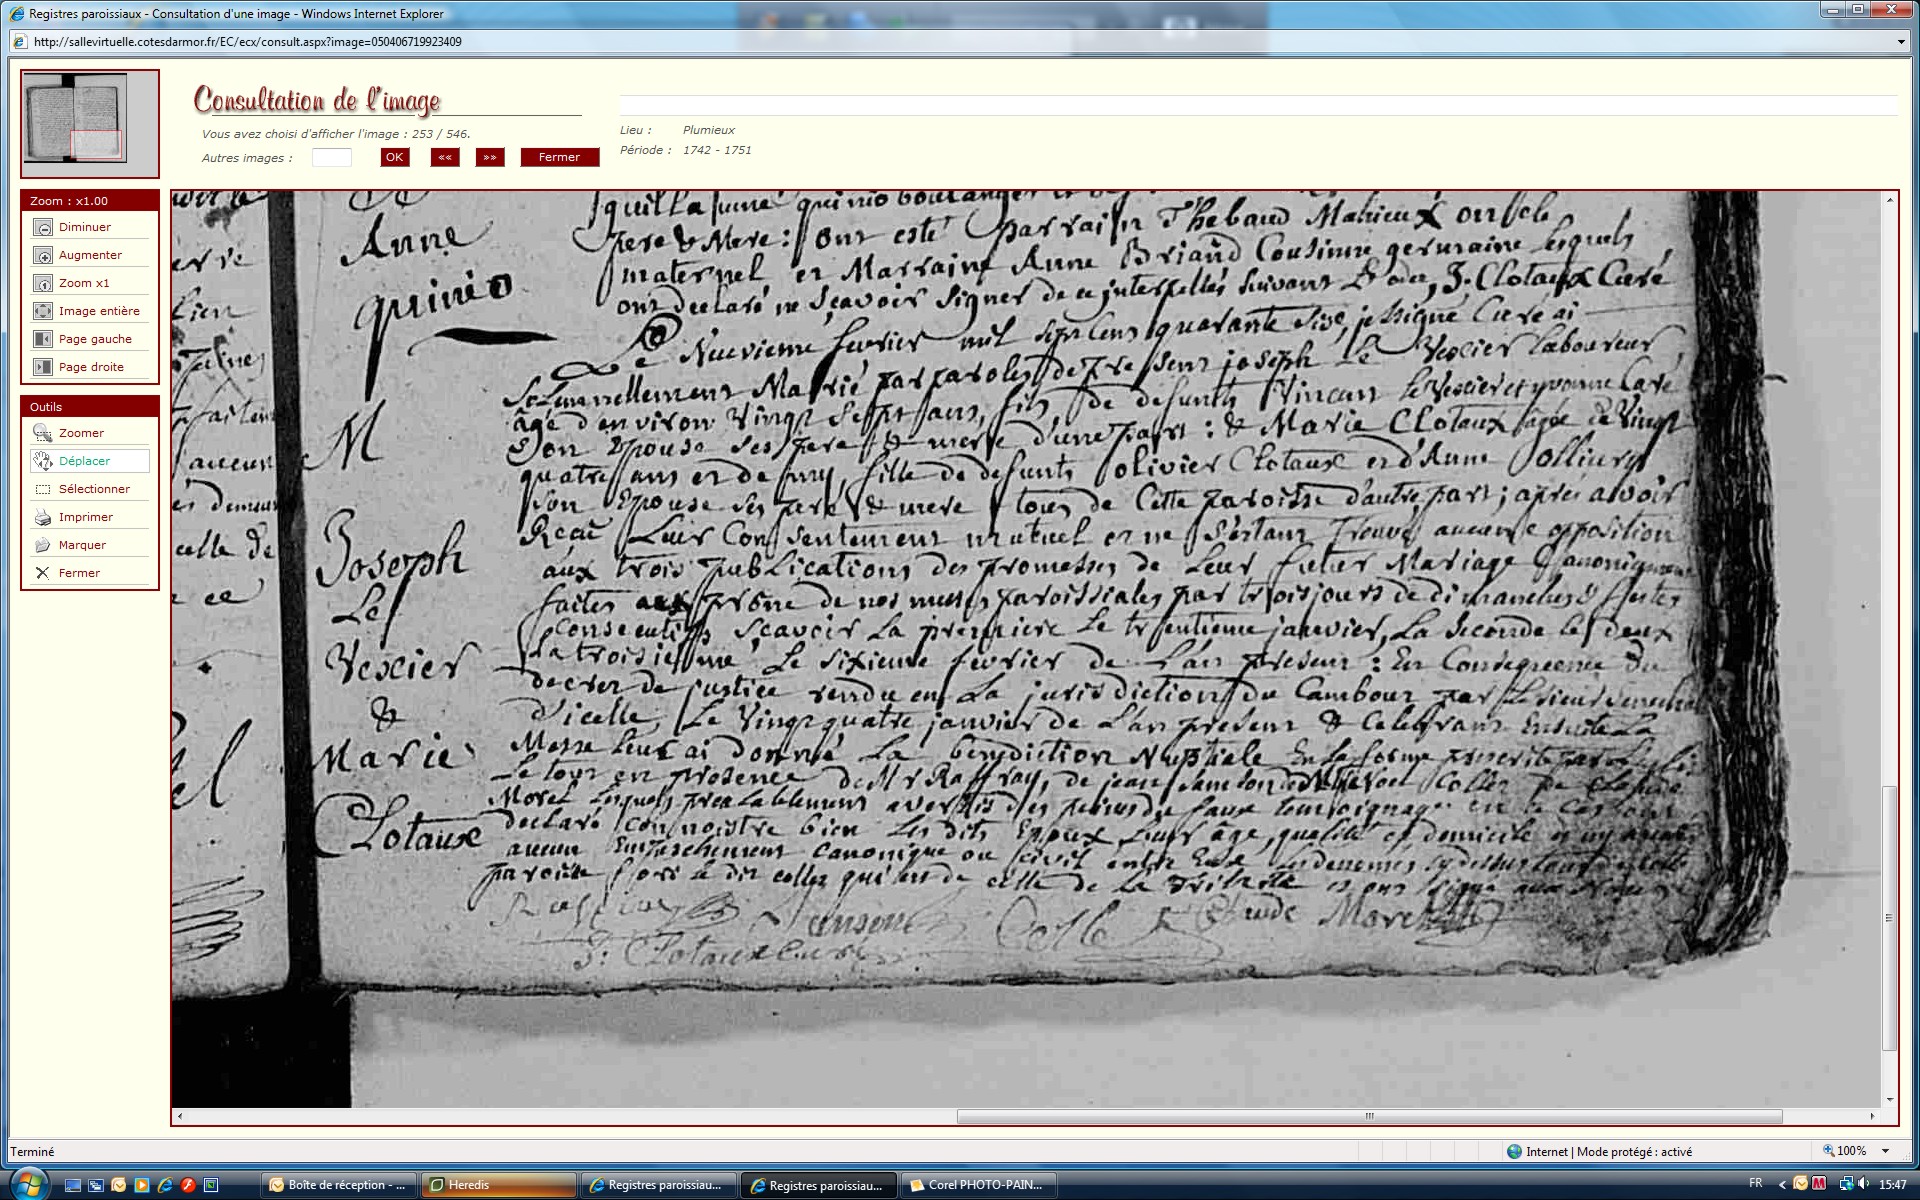 Registres paroissiaux - Consultation d'une image - Windows Internet Explorer
http://sallevirtuelle.cotesdarmor.fr/EC/ecx/consult.aspx?image=050406719923409
Consultation de l'image
Vous avez choisi d'afficher l'image : 253 / 546.
Autres images :
OK
««
»»
Fermer
Lieu : Plumieux
Période : 1742 - 1751
Zoom : x1.00
Diminuer
Augmenter
Zoom x1
Image entière
Page gauche
Page droite
Outils
Zoomer
Déplacer
Sélectionner
Imprimer
Marquer
Fermer
Anne
quinio
M
Joseph
Le
Vexier
&
Marie
Clotaux
quinio boulanger
pere & Mere : ont esté parrain Thebaud Mahieux oncle
maternel et Marraine Anne Briand Cousinne germaine lesquels
ont declaré ne sçavoir signer de ce interpellés suivant J. Clotaux Curé
Le Neuvieme fevrier mil sept cens quarante six, je sosigné Curé ai
solennellement Marié par paroles de present joseph le Vexier laboureur
âgé d'environ vingt sept ans, fils de defunts Vincent le Vexier et yvonne Caré
son Epouse ses pere & mere d'une part : & Marie Clotaux âgée de vingt
quatre ans et demy, fille de defunts olivier Clotaux et d'Anne Jolliury
son Epouse ses pere & mere tous de Cette paroisse d'autre part ; après avoir
Reçu Leur Consentement mutuel et ne s'estant Trouvé aucune opposition
aux trois publications des promesses de Leur futur Mariage Canoniquement
faites au prône de nos messes paroissiales par trois jours de dimanches & festes
consecutifs, sçavoir La premiere Le trentieme janvier, La seconde le deux
La troisieme Le sixieme fevrier de L'an present : En Consequence du
decret de justice rendu en La jurisdiction du Cambout par Le sieur senechal
d'icelle, Le Vingt quatre janvier de L'an present & Celebrant Ensuite La
Messe Leur ai donné La benediction Nuptiale En La forme prescrite
Le tout en presence de Mr Raffray, de jean Samson de Noel Collet de Claude
Morel Lesquels prealablement avertis des peines du faux temoignage
declaré connoistre bien Les dits Epoux, Leur âge, qualité et domicile
aucun Empeschement canonique ou civil entre Eux
paroisse fors le dit collet qui est de celle de La Trinité et ont signé
Samson Collet Claude Morel
J: Clotaux Curé
Terminé
Internet | Mode protégé : activé
100%
Boîte de réception - ...
Heredis
Registres paroissiau...
Registres paroissiau...
Corel PHOTO-PAIN...
FR
15:47